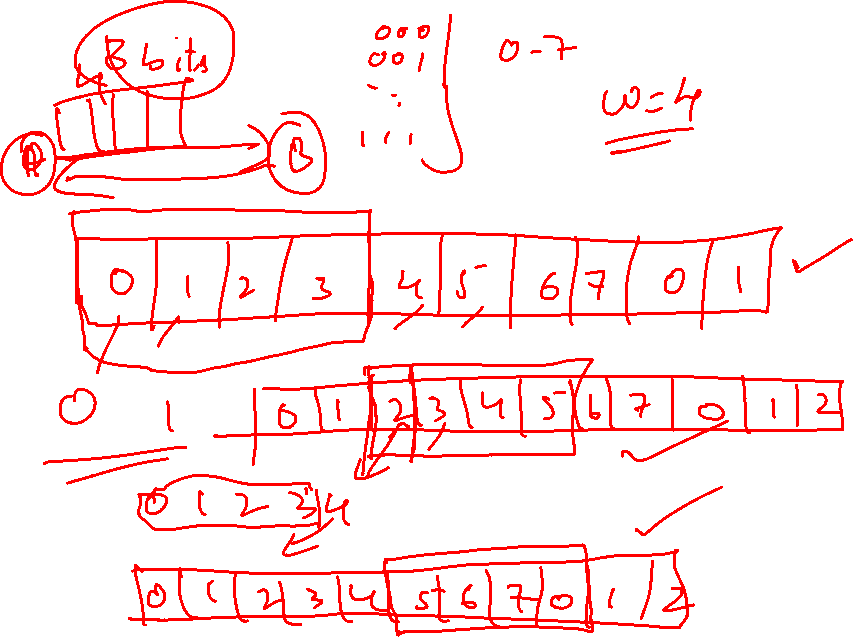 3 bits
000
001
...
111
0-7
w=4
A
B
0 1 2 3 4 5 6 7 0 1
0 1
0 1 2 3 4 5 6 7 0 1 2
0 1 2 3 4
0 1 2 3 4 5 6 7 0 1 2